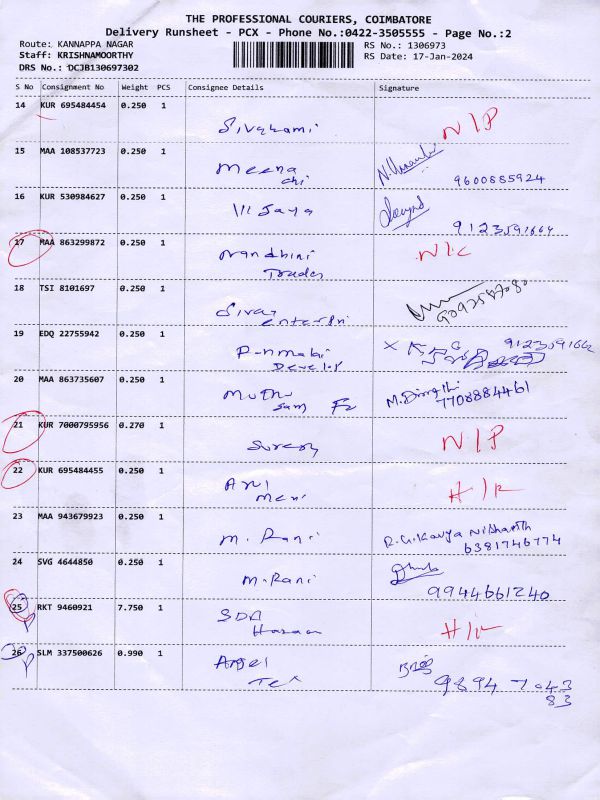 THE PROFESSIONAL COURIERS, COIMBATORE
Delivery Runsheet - PCX - Phone No.:0422-3505555 - Page No.:2
Route: KANNAPPA NAGAR RS No.: 1306973
Staff: KRISHNAMOORTHY RS Date: 17-Jan-2024
DRS No.: DCJB130697302
S No Consignment No Weight PCS Consignee Details Signature
14 KUR 695484454 0.250 1
Sivakami N/P
15 MAA 108537723 0.250 1
Meena
chi 9600885924
16 KUR 530984627 0.250 1
Vijaya
17 MAA 863299872 0.250 1
Nandhini N/C
Trades
18 TSI 8101697 0.250 1
Sivas
enterpri
19 EDQ 22755942 0.250 1
Develop
20 MAA 863735607 0.250 1
Muthu
Sam 7708884461
21 KUR 7000795956 0.270 1
Suresh N/P
22 KUR 695484455 0.250 1
Arul
Mani
23 MAA 943679923 0.250 1
M. Rani R.G. Kavya Nishanth
6381746774
24 SVG 4644850 0.250 1
M. Rani
9944661240
25 RKT 9460921 7.750 1
SDA
Hasan
26 SLM 337500626 0.990 1
Angel
Tex 9894 7043
83